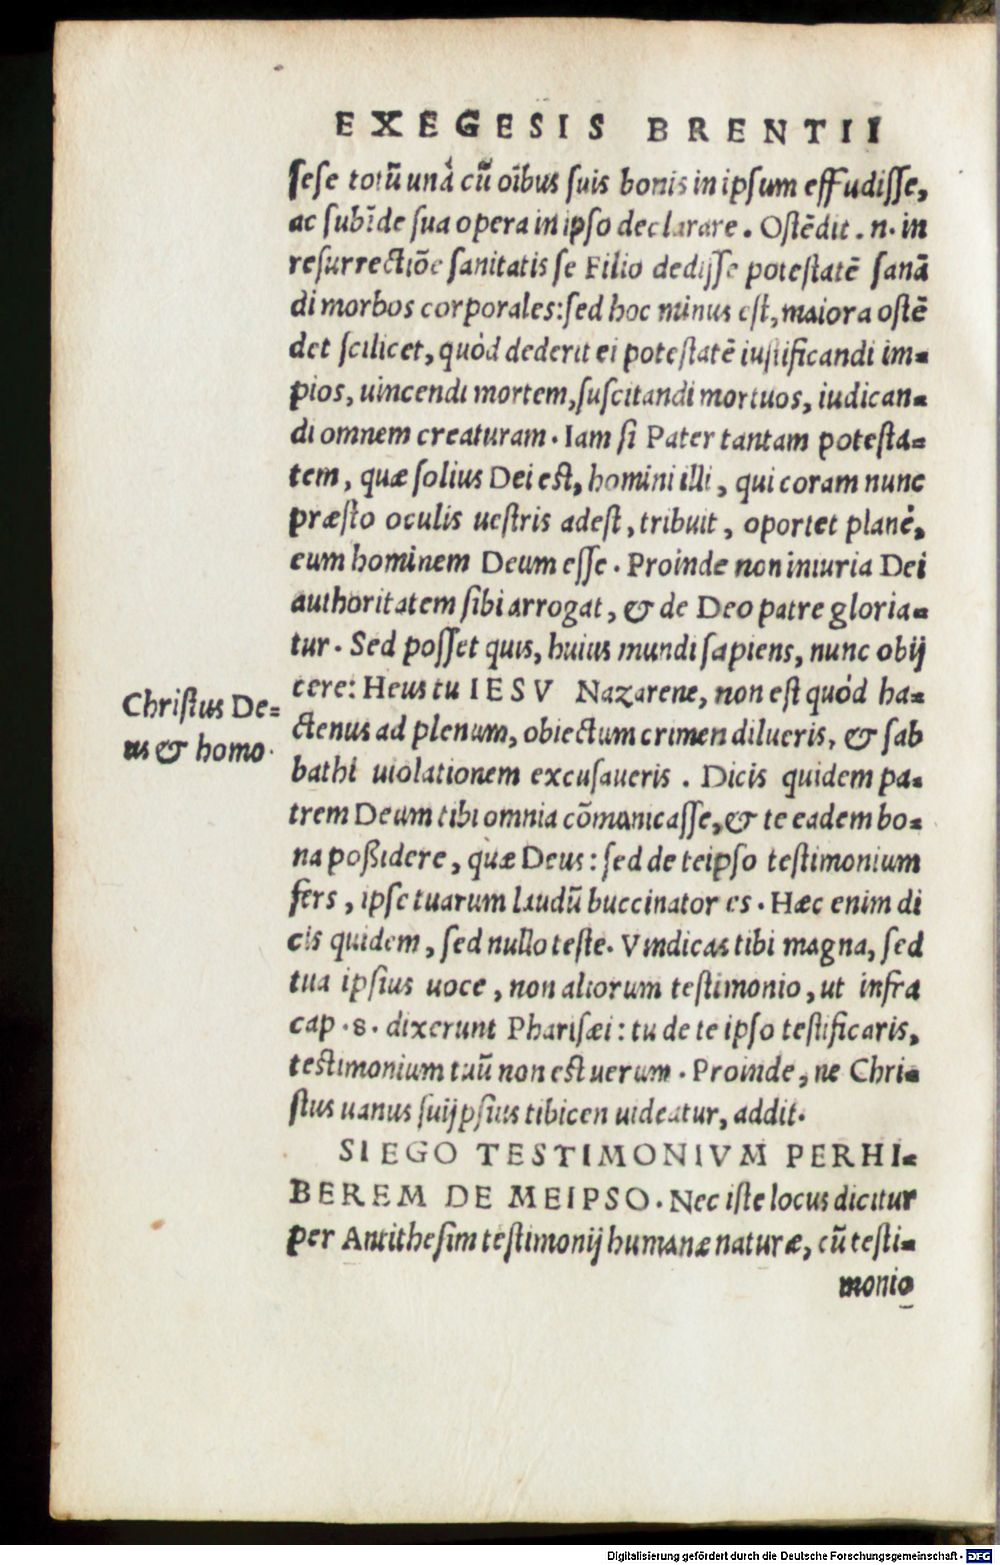 EXEGESIS BRENTII
sese totũ unà cũ oībus suis bonis in ipsum effudisse,
ac subīde sua opera in ipso declarare. Ostẽdit .n. in
resurrectiõe sanitatis se Filio dedisse potestatẽ sanã
di morbos corporales: sed hoc minus est, maiora ostẽ
det scilicet, quòd dederit ei potestatẽ iustificandi im=
pios, uincendi mortem, suscitandi mortuos, iudican=
di omnem creaturam. Iam si Pater tantam potesta=
tem, quæ solius Dei est, homini illi, qui coram nunc
præsto oculis uestris adest, tribuit, oportet planè,
eum hominem Deum esse. Proinde non iniuria Dei
authoritatem sibi arrogat, & de Deo patre gloria=
tur. Sed posset quis, huius mundi sapiens, nunc obij
cere: Heus tu IESV Nazarene, non est quòd ha=
Christus De=
us & homo.
ctenus ad plenum, obiectum crimen dilueris, & sab
bathi uiolationem excusaueris. Dicis quidem pa=
trem Deum tibi omnia cõmunicasse, & te eadem bo=
na poßidere, quæ Deus: sed de teipso testimonium
fers, ipse tuarum laudũ buccinator es. Hæc enim di
cis quidem, sed nullo teste. Vindicas tibi magna, sed
tua ipsius uoce, non aliorum testimonio, ut infra
cap .8. dixerunt Pharisæi: tu de te ipso testificaris,
testimonium tuũ non est uerum. Proinde, ne Chri=
stus uanus suijpsius tibicen uideatur, addit.
SI EGO TESTIMONIVM PERHI=
BEREM DE MEIPSO. Nec iste locus dicitur
per Antithesim testimonij humanæ naturæ, cũ testi=
monio
Digitalisierung gefördert durch die Deutsche Forschungsgemeinschaft - DFG